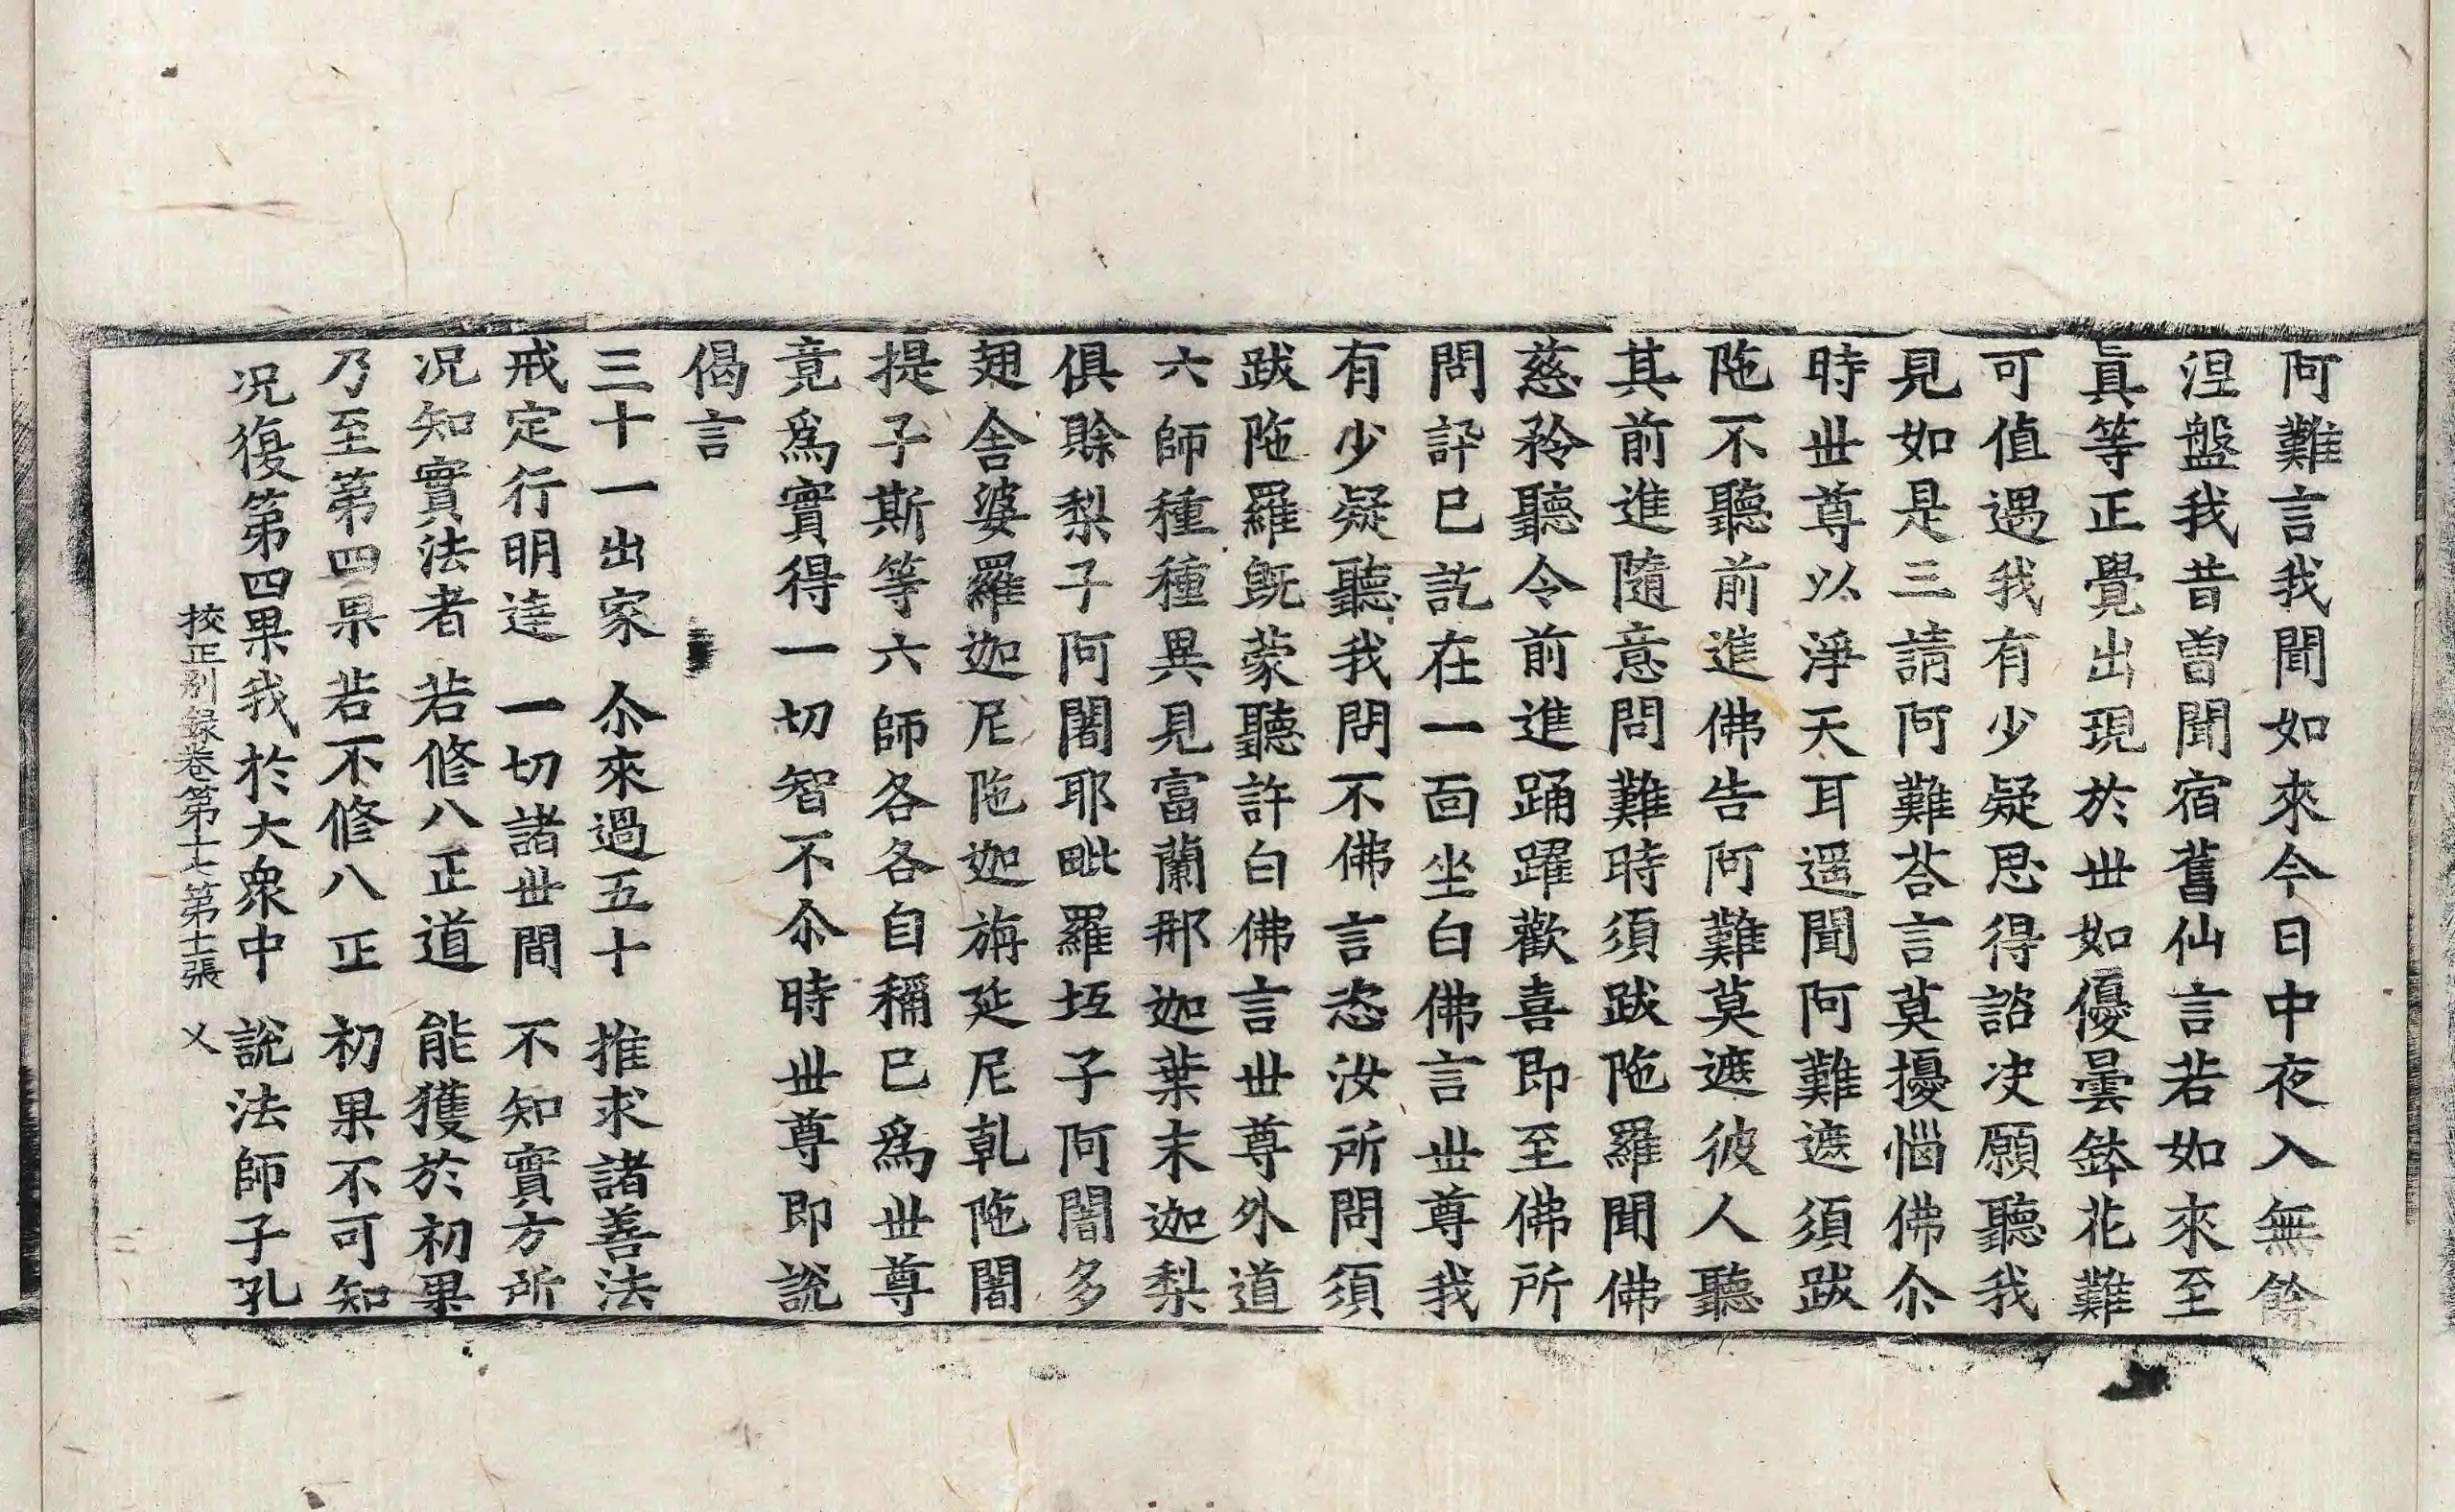 阿難言我聞如來今日中夜入無餘
涅盤我昔曽聞宿舊仙言若如來至
眞等正覺出現於丗如優曇鉢花難
可值遇我有少疑思得諮决願聽我
見如是三請阿難荅言莫擾惱佛尒
時丗尊以淨天耳遥聞阿難遮須跋
陁不聽前進佛告阿難莫遮彼人聽
其前進隨意問難時須跋陁羅聞佛
慈矜聽令前進踊躍歡喜即至佛所
問訊已訖在一面坐白佛言丗尊我
有少疑聽我問不佛言恣汝所問須
跋陁羅旣蒙聽許白佛言丗尊外道
六師種種異見富蘭那迦葉末迦梨
俱賖梨子阿闍耶毗羅坻子阿闍多
翅舎婆羅迦尼陁迦旃延尼乹陁闍
提子斯等六師各各自稱已爲丗尊
竟爲實得一切智不尒時丗尊即說
偈言
三十一出家　尒來過五十　推求諸善法
戒定行明達　一切諸丗間　不知實方所
况知實法者　若修八正道　能獲於初果
乃至第四果　若不修八正　初果不可知
况復第四果　我於大衆中　說法師子孔
校正別錄卷第十七第十二張　乂